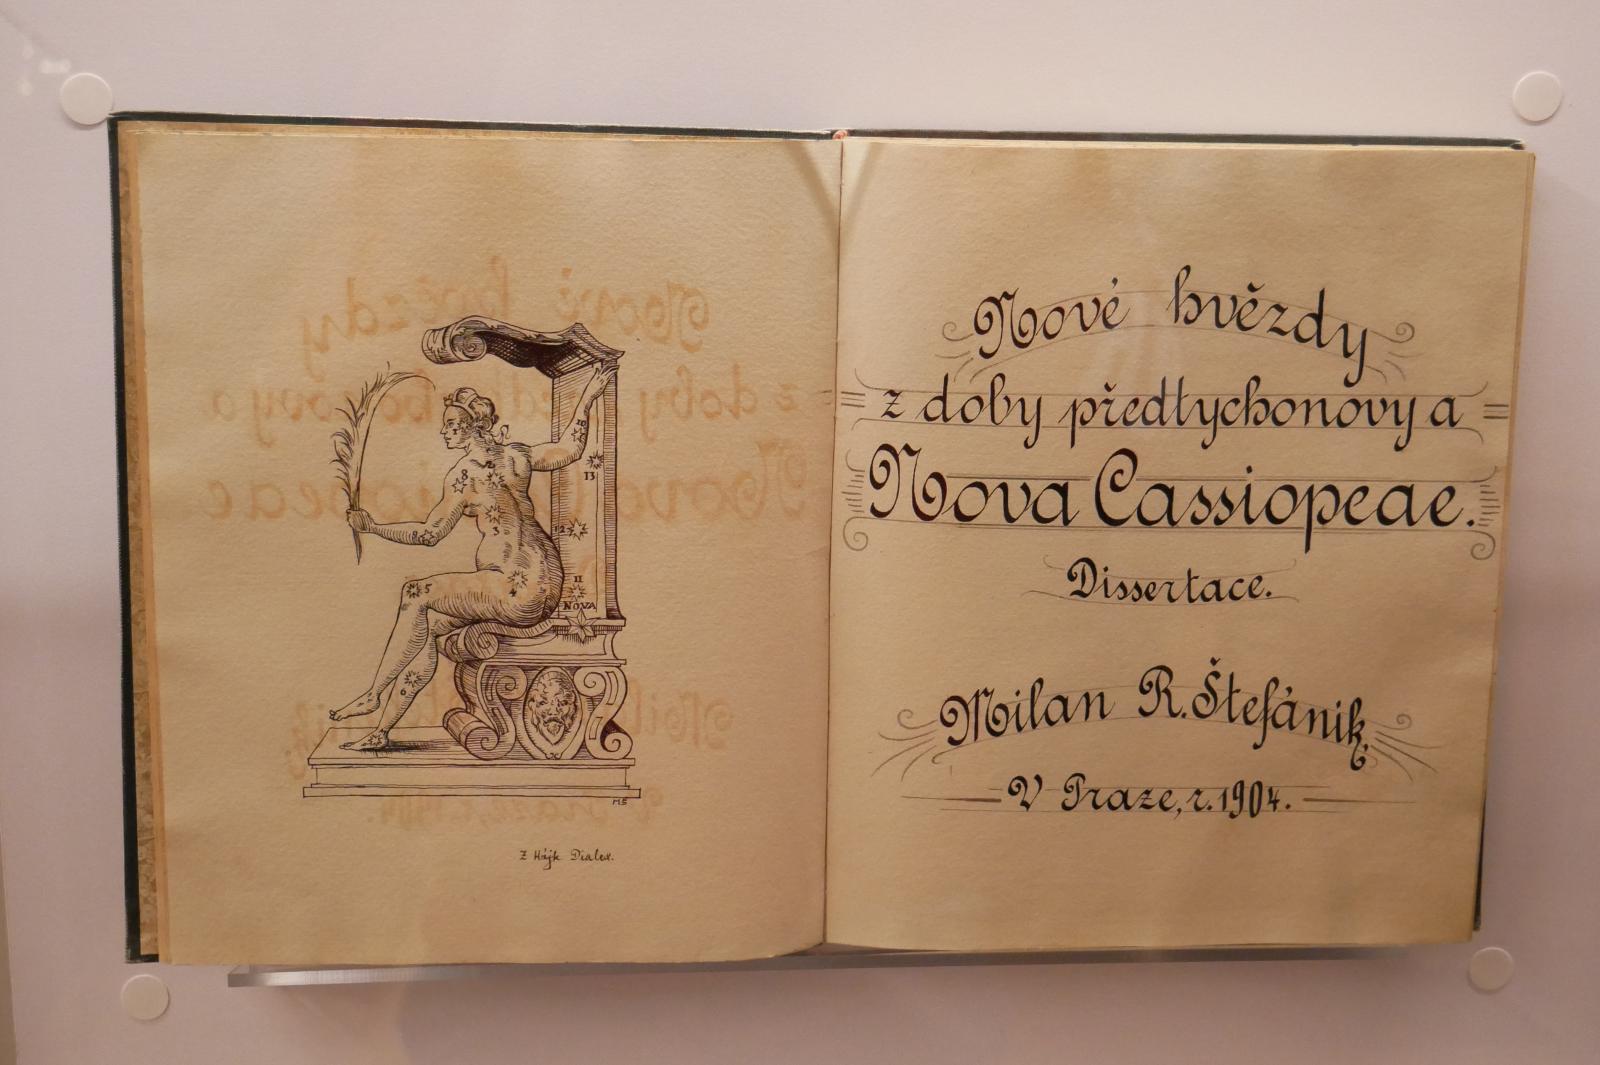 10
8
2
13
3
12
9
5
4
11
NOVA
6
MS
Z Hájk Dialex.
Nové hvězdy
z doby předtychonovy a
Nova Cassiopeae.
Dissertace.
Milan R. Štefánik,
V Praze, r. 1904.